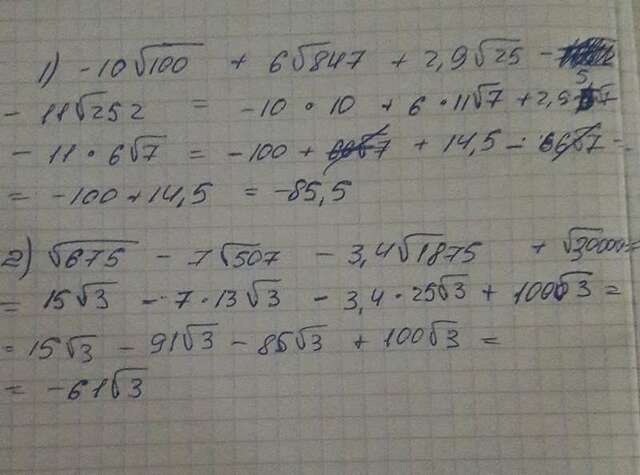 1) -10√100 + 6√847 + 2,9√25 -
- 11√252 = -10 • 10 + 6 • 11√7 + 2,9 • 5
- 11 • 6√7 = -100 + 66√7 + 14,5 - 66√7 =
= -100 + 14,5 = -85,5
2) √675 - 7√507 - 3,4√1875 + √30000 =
= 15√3 - 7 • 13√3 - 3,4 • 25√3 + 100√3 =
= 15√3 - 91√3 - 85√3 + 100√3 =
= -61√3